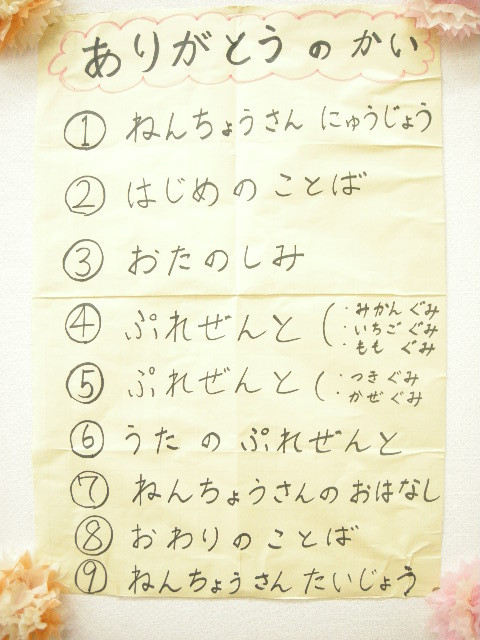 ありがとう の かい
① ねんちょうさん にゅうじょう
② はじめの ことば
③ おたのしみ
④ ぷれぜんと (・みかん ぐみ
・いちご ぐみ
・もも ぐみ
⑤ ぷれぜんと (・つき ぐみ
・かぜ ぐみ
⑥ うた の ぷれぜんと
⑦ ねんちょうさんの おはなし
⑧ おわりの ことば
⑨ ねんちょうさん たいじょう